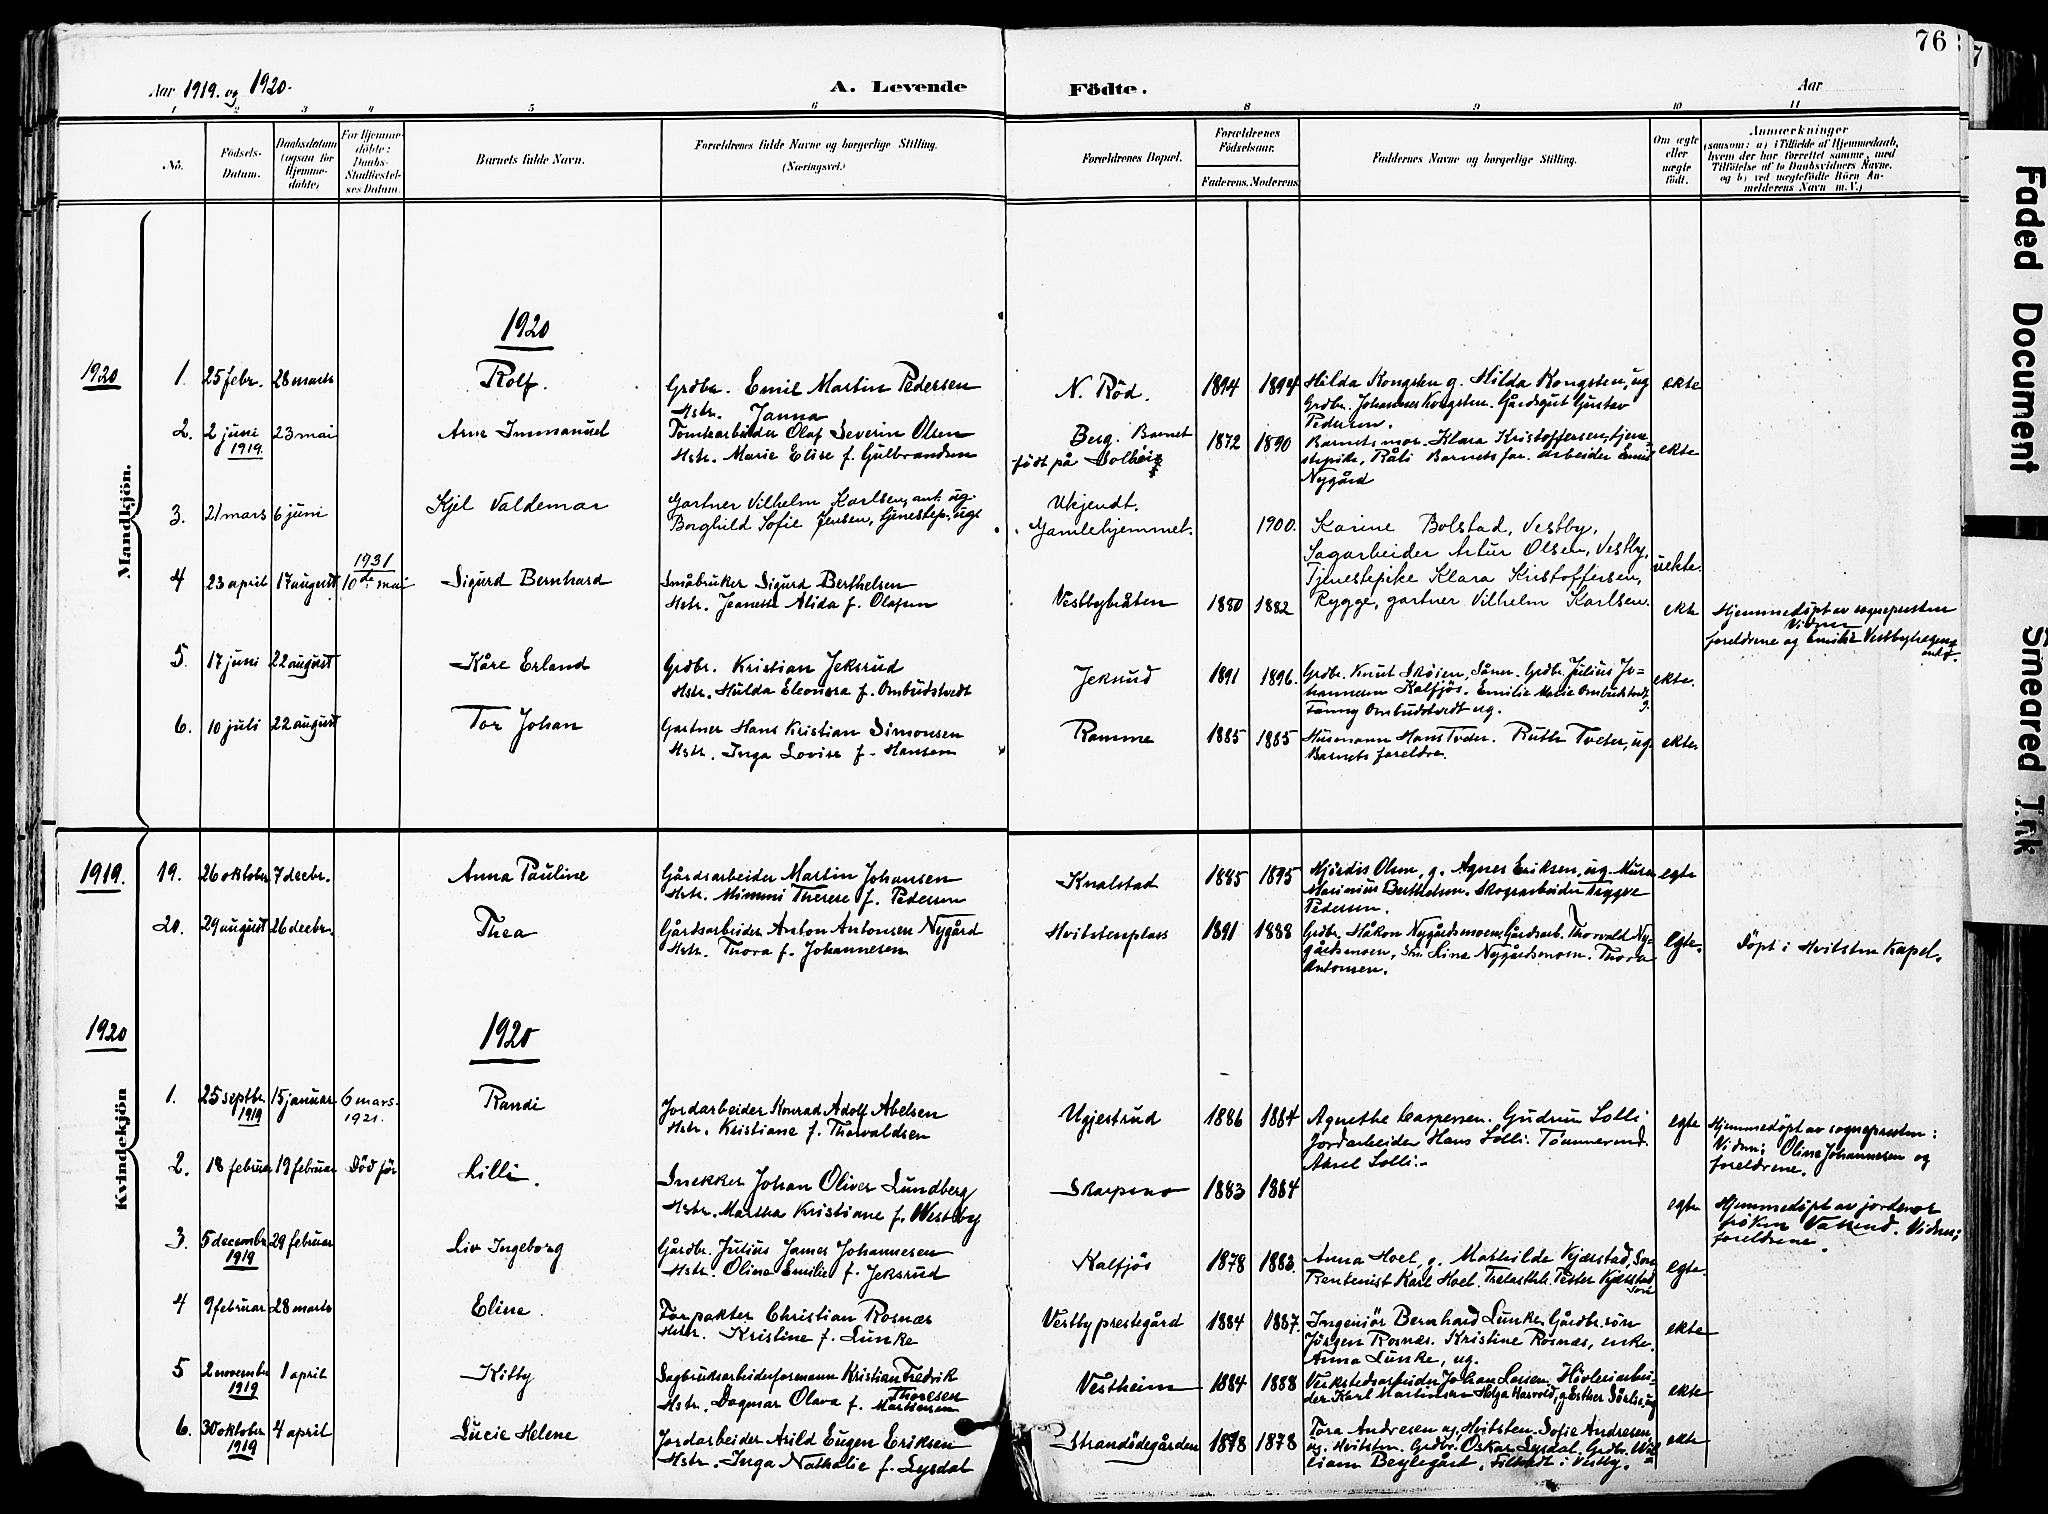 76
Aar 1919. og 1920.
A. Levende Födte.
Aar
1 2 3 4 5 6 8 9 10 11
No.
Födsels-Datum.
Daabsdatum (ogsaa for Hjemme-döbte)
For Hjemme-döbte: Daabs-Stadfæstel-ses Datum.
Barnets fulde Navn.
Forældrenes fulde Navne og borgerlige Stilling.
(Næringsvei.)
Forældrenes Bopæl.
Forældrenes Födselsaar.
Faderens. Moderens.
Faddernes Navne og borgerlige Stilling.
Om ægte eller uægte födt.
Anmærkninger
(saasom: a) i Tilfælde af Hjemmedaab, hvem der har forrettet samme, med Tilföielse af to Daabsvidners Navne. og b) ved uægtefödte Börn An-melderens Navn m. V.)
Mandkjön.
1920
1920
1. 25 febr. 28 marts Rolf.
Grdbr. Emil Martin Pedersen
Hstr. Janna
N. Röd. 1894 1894
Hilda Kongsten g. Hilda Kongsten, ug
Grdbr. Johannes Kongsten. Gårdsgut Gustav
Pedersen.
ekte
2. 2 juni 1919. 23 mai Arne Immanuel
Tomtearbeider Olaf Severin Olsen
Hstr. Marie Elise f. Gulbrandsen
Berg. Barnet
födt på Solheig
1872 1890
Barnets mor. Klara Kristoffersen, tjene-
stepike, Råli Barnets far. Arbeider Emil
Nygård
ekte
3. 21 mars 6 juni Kjel Valdemar
Gartner Vilhelm Karlsen, ant. ug.
Borghild Sofie Jensen, tjenestep. ug.
Ukjendt.
Gamlehjemmet.
1900.
Karine Bolstad, Vestby.
Sagarbeider Artur Olsen, Vestby,
Tjenestepike Klara Kristoffersen,
Rygge, gartner Vilhelm Karlsen.
uekte.
4 23 april 17 august 1931 10de mai Sigurd Bernhard
Småbruker Sigurd Berthelsen
Hstr. Jeanette Alida f. Olafsen
Vestbybråten 1880 1882 ekte
Hjemmedöpt av sognepresten
Vidner
foreldrene og Emilie Vestbyhagen
5. 17 juni 22 august Kåre Erland
Grdbr. Kristian Jeksrud
Hstr. Hulda Eleonora f. Ombudstvedt
Jeksrud 1891 1896.
Grdbr. Knut Sköien, Såner. Grdbr. Julius Jo-
hannesen Kalfjös. Emilie Marie Ombudstvedt
g.
Fanny Ombudstvedt ug.
ekte.
6. 10 juli 22 august Tor Johan
Gartner Hans Kristian Simonsen
Hstr. Inga Lovise f. Hansen
Ramme 1885 1885
Husmann Hans Tveter. Ruth Tveter, ug
Barnets foreldre.
ekte
Kvindekjön
1919.
19. 26 oktober 7 decbr. Anna Pauline
Gårdsarbeider Martin Johansen
Hstr. Mimmi Therese f. Pedersen
Knalstad 1885 1895
Hjördis Olsen, g. Agnes Eriksen, ug. Murer
Marinius Berthelsen. Skogsarbeider Trygve
Pedersen.
egte
20. 29 august 26 decbr. Thea
Gårdsarbeider Anton Antonsen Nygård
Hstr. Thora f. Johannesen
Hvitstenplass 1891 1888
Grdbr. Håkon Nygårdsmoen, Gårdsarb. Thorvald Ny-
gårdsmoen, Son. Lina Nygårdsmoen. Thora
Antonsen.
Egte.
Döpt i Hvitsten Kapel.
1920
1920
1. 25 septbr. 1919 15 januar 6 mars. 1921. Randi
Jordarbeider Konrad Adolf Abelsen
Hstr. Kristiane f. Thorvaldsen
Ugjestrud 1886 1884
Agnethe Caspersen. Gudrun Solli
Jordarbeider Hans Solli. Tömmermd.
Aksel Solli.
egte
Hjemmedöpt av sognepresten:
Vidner: Oline Johannesen og
foreldrene.
2. 18 februar 19 februar Död för Lilli.
Snekker Johan Oliver Lundberg
Hstr. Martha Kristiane f. Westby
Skarpsno 1883 1884 egte
Hjemmedöpt av jordmor
fröken Vattend. Vidner:
foreldrene.
3. 5 decembr 1919 29 februar Liv Ingeborg
Gårdbr. Julius James Johannesen
Hstr. Oline Emilie f. Jeksrud
Kalfjös 1878 1883.
Anna Hoel, g. Mathilde Kjælstad, Son
Rentenist Karl Hoel. Trelasthl. Peter Kjælstad
Son
egte.
4 9 februar 28 marts Eline.
Forpakter Christian Rosnæs
Hstr. Kristine f. Lunke
Vestby prestegård 1884 1887.
Ingeniör Bernhard Lunke. Gårdbr. sön
Jörgen Rosnæs. Kristine Rosnæs, enke.
Anna Lunke, ug.
ekte
5 2 november 1919 1 april Kitty
Sagbruksarbeiderformann Kristian Fredrik
Thoresen
Hstr. Dagmar Olava f. Martinsen
Vestheim 1884 1888
Verkstedsarbeider Johan Larsen. Hövleriarbei-
der Karl Martinsen Helga Harvold, g. Esther Sörlie, ug
ekte
6. 30 oktober 1919 4 april Lucie Helene
Jordarbeider Arild Eugen Eriksen
Hstr. Inga Nathalie f. Lysdal
Strandödegården 1878 1878
Tora Andresen ug, Hvitsten. Sofie Andresen,
ug. Hvitsten. Grdbr. Oskar Lysdal. Grdbr. Wil-
liam Beylegård, Filtvedt i Vestby.
ekte
Faded Document
Smeared Ink